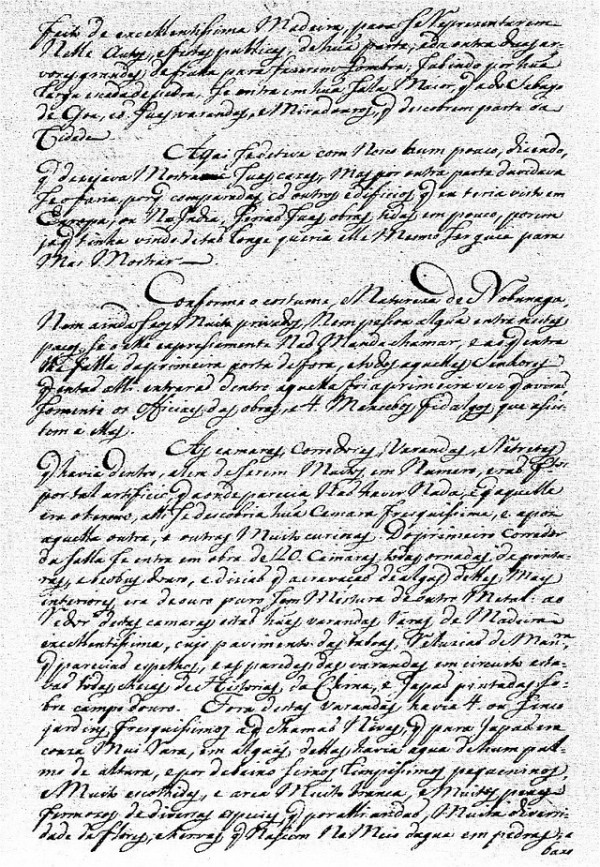 feito de excellentissima Madeira, para se representarem
Nelle Autos, e festas publicas; de hũa parte, e da outra duas ar-
vores grandes de fruta para fazerem sombra; subindo por hũa
larga escada de pedra, se entra em hũa salla Maior, q̃ a do Sabayo
de Goa, cõ suas varandas, e Miradouros, q̃ descobrem parte da
Cidade
Aqui se deteve com Nosco hum pouco, dizendo,
q̃ desejava Mostrarme suas cazas, Mas por outra parte duvidava
se o faria, porq̃ comparadas cõ outros edificios q̃ eu teria visto em
Europa, ou Na India, seriaõ suas obras tidas em pouco, porem
ja q̃ tinha vindo de taõ longe queria elle Mesmo ser guia para
Mas Mostrar
Conforme o costume, e Natureza de Nobunaga,
Nem ainda seos Muito privados, Nem pesoa algũa entra nestes
paços, se elle expresamente Naõ Manda chamar, e aos q̃ entra
lhe falla da primeira porta de fora, e todos aquelles Senhores
q̃ entaõ alli entraraõ dentro aquella foi a primeira vez q̃ o viraõ
somente os Officiaes das obras, e 4. Mancebos fidalgos que assis-
tem a elles.
As camaras, Corredores, Varandas, e Retretes
q̃ havia dentro, alem de serem Muitos em Numero, eraõ feitos
por tal artificio, q̃ aonde parecia Naõ haver Nada, e q̃ aquelle
era o termo, alli se descobria hũa Camara fresquissima, e apos
aquella outra, e outras Muito curiosas. Do primeiro Corredor
da salla se entra em obra de 20. Camaras, todas ornadas de pintu-
ras, e biobus douro, e dizias q̃ a cravaçaõ de algũas dellas, Mays
interiores, era de ouro puro sem Mistura de outro Metal: ao
redor destas camaras estaõ hũas varandas raras, de Madeira
excellentissima, cujo pavimento das taboas, reluziaõ de Man.ra
q̃ pareciaõ espelhos, e as paredes das varandas em circuito esta-
vaõ todas cheias de Historias da China, e Japaõ pintadas so-
bre campo douro. Fora destas varandas havia 4. ou sinco
jardins fresquissimos a q̃ chamaõ Nivas, q̃ para Japaõ era
couza Mui rara, em algũas dellas havia agua de hum pal-
mo de altura, e por debaixo seixos limpissimos pequeninos,
e Muito escolhidos, e area Muito branca, e Muitos peixes
fermosos de diversas especies q̃ por alli andaõ, Muita diversi-
dade de flores, e hervas q̃ Naseem No Meio dagua em pedras;